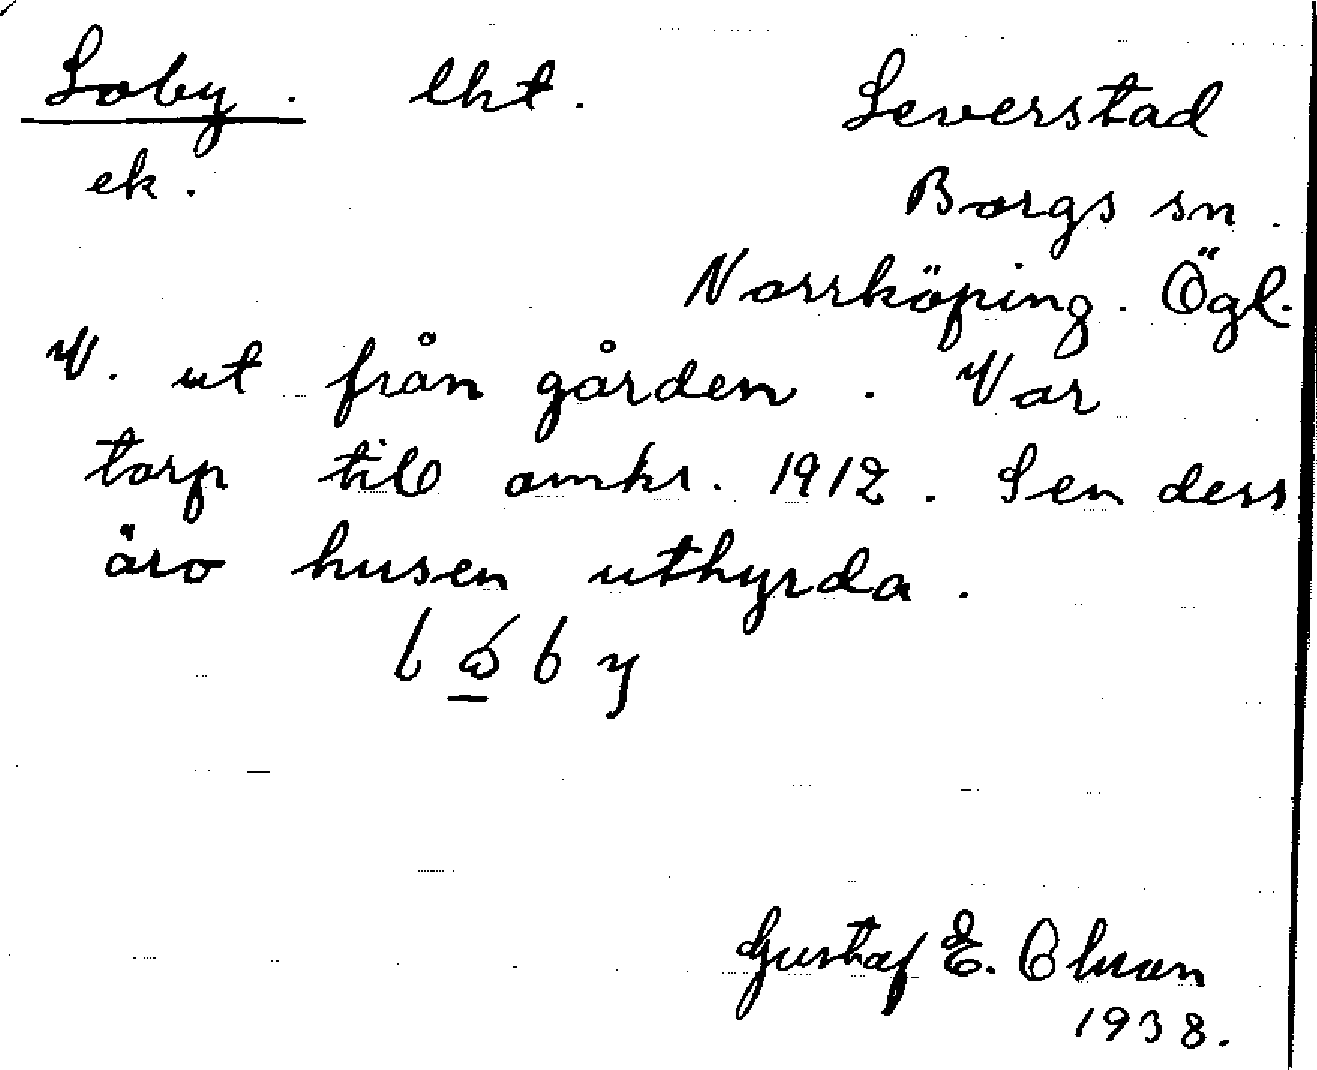 Loby. lht. Leverstad
ek. Borgs sn.
Norrköping. Ögl.
V. ut från gården. Var
torp till omkr. 1912. Sen dess
äro husen uthyrda.
Gustaf E. Olsson
1938.